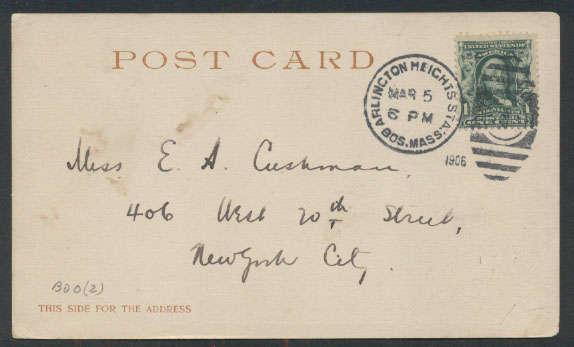 POST CARD
ARLINGTON HEIGHTS STA.
MAR 5
6 PM
BOS. MASS.
1906
UNITED STATES OF AMERICA
1 1
ONE CENT
Miss E. A. Cushman,
406 West 20th Street,
New York City,
BOO(2)
THIS SIDE FOR THE ADDRESS